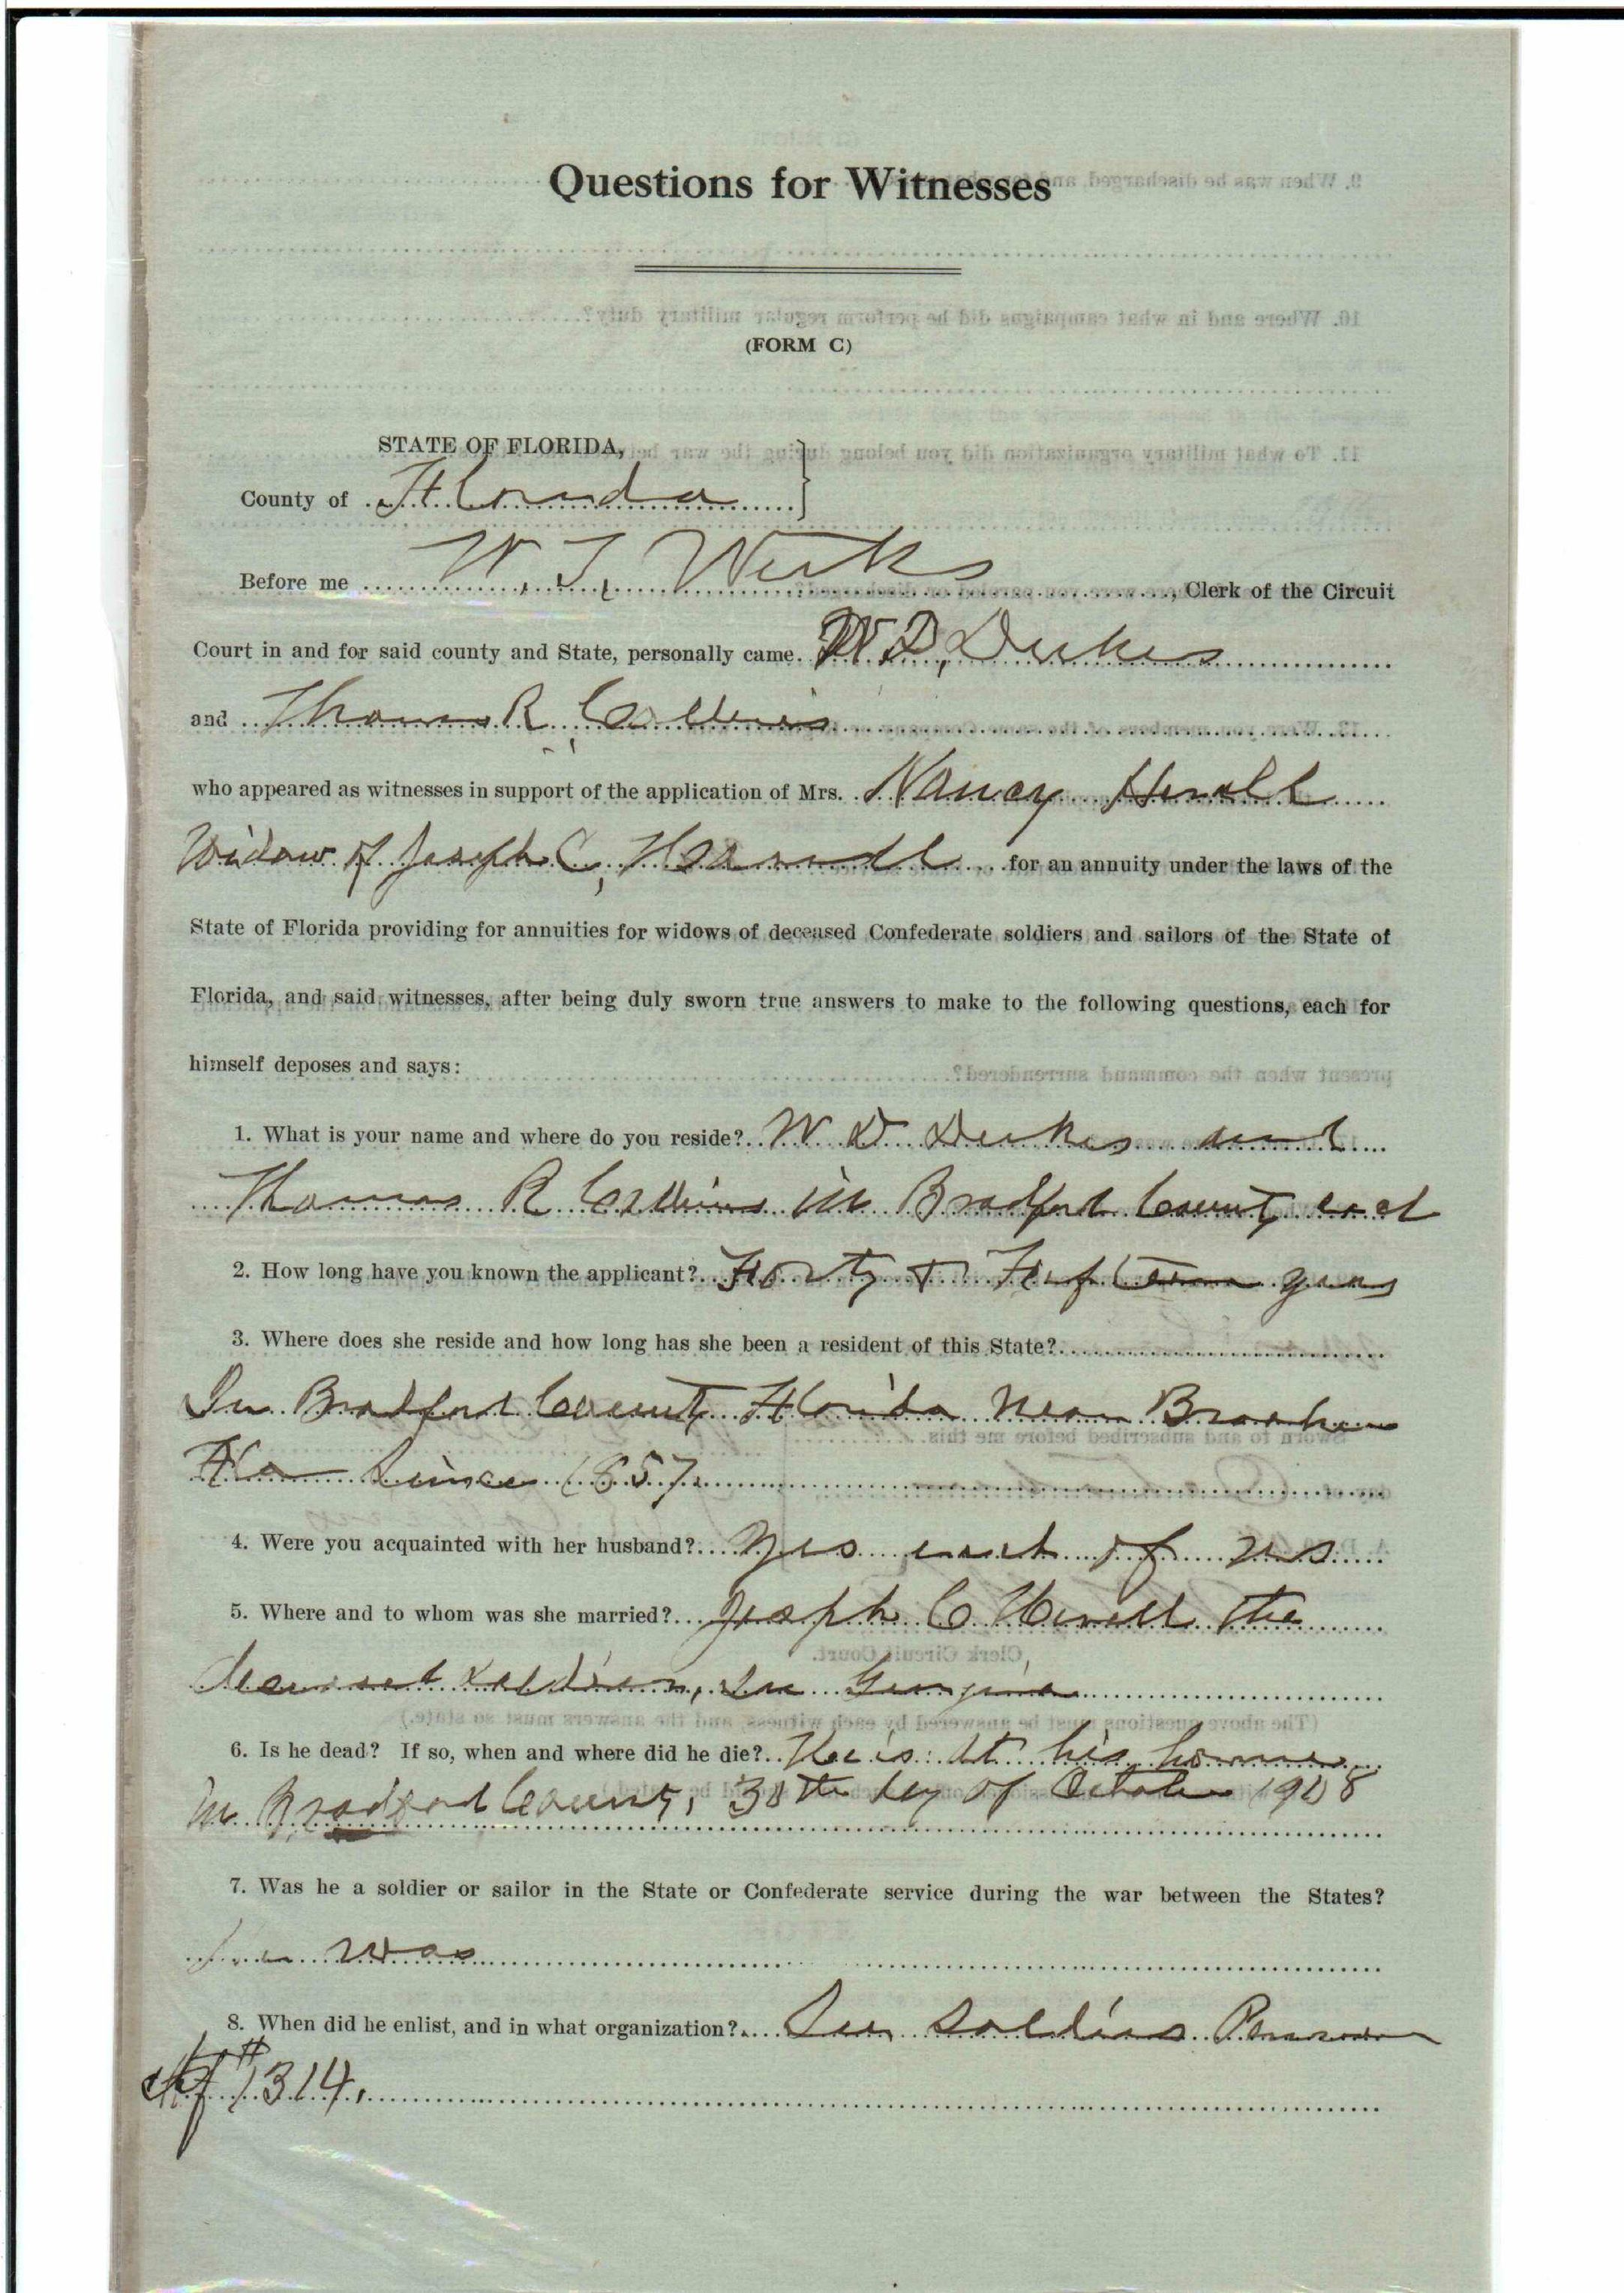 Questions for Witnesses
(FORM C)
STATE OF FLORIDA,
County of Florida
Before me W. T. Weeks, Clerk of the Circuit
Court in and for said county and State, personally came W D, Dukes
and Thomas R
who appeared as witnesses in support of the application of Mrs. Nancy
Widow of Joseph C, for an annuity under the laws of the
State of Florida providing for annuities for widows of deceased Confederate soldiers and sailors of the State of
Florida, and said witnesses, after being duly sworn true answers to make to the following questions, each for
himself deposes and says:
1. What is your name and where do you reside? W D Dukes and
Thomas R in Bradford County each
2. How long have you known the applicant? Forty & Fifteen years
3. Where does she reside and how long has she been a resident of this State?
In Bradford County Florida Near
Fla Since 1857
4. Were you acquainted with her husband? Yes each of us
5. Where and to whom was she married? Joseph C the
deceased soldier, In Georgia
6. Is he dead? If so, when and where did he die? He is. At his home
in Bradford County, 30th day of October 1908
7. Was he a soldier or sailor in the State or Confederate service during the war between the States?
he was
8. When did he enlist, and in what organization? See Soldiers Pension
# 1314.